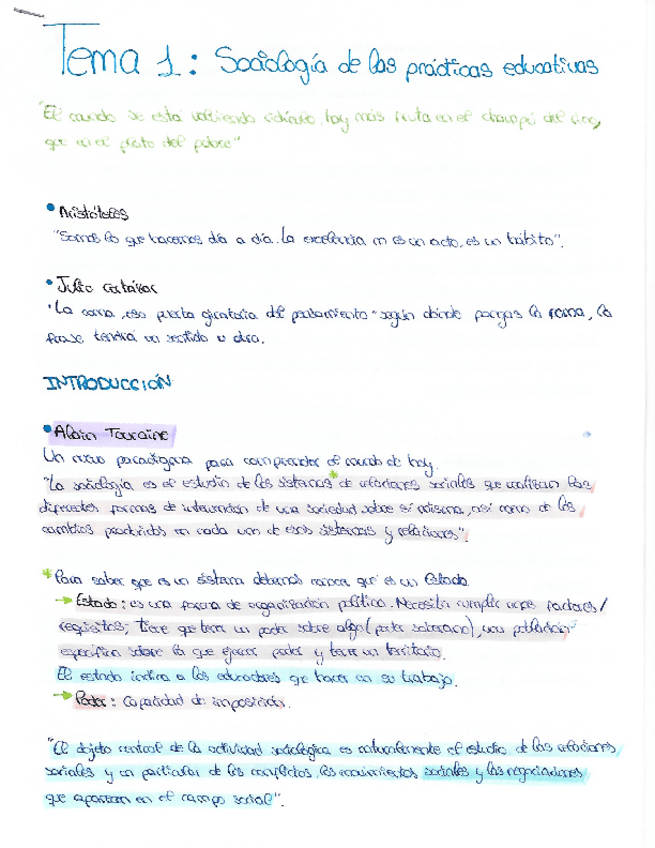 Tema 1: Sociología de las prácticas educativas
"El mundo se está volviendo ridículo, hay más fruta en el champú del rico,
que en el plato del pobre"
• Aristóteles
"Somos lo que hacemos día a día. La excelencia no es un acto, es un hábito".
• Julio Cortázar
"La coma, esa puerta giratoria del pensamiento" según dónde pongas la coma, la
frase tendrá un sentido u otro.
INTRODUCCIÓN
• Alain Touraine
Un nuevo paradigma para comprender el mundo de hoy.
"La sociología es el estudio de los sistemas* de relaciones sociales que realizan las
diferentes formas de intervención de una sociedad sobre sí misma, así como de los
cambios producidos en cada uno de esos sistemas y relaciones".
* Para saber que es un sistema debemos conocer qué es un Estado.
→ Estado: es una forma de organización política. Necesita cumplir unos factores/
requisitos; tiene que tener un poder sobre algo (poder soberano), una población
específica sobre la que ejercer poder y tener un territorio.
El estado indica a los educadores que hacer en su trabajo.
→ Poder: Capacidad de imposición.
"El objeto central de la actividad sociológica es naturalmente el estudio de las relaciones
sociales y en particular de los conflictos, los movimientos sociales y las negociaciones
que aportan en el campo social".